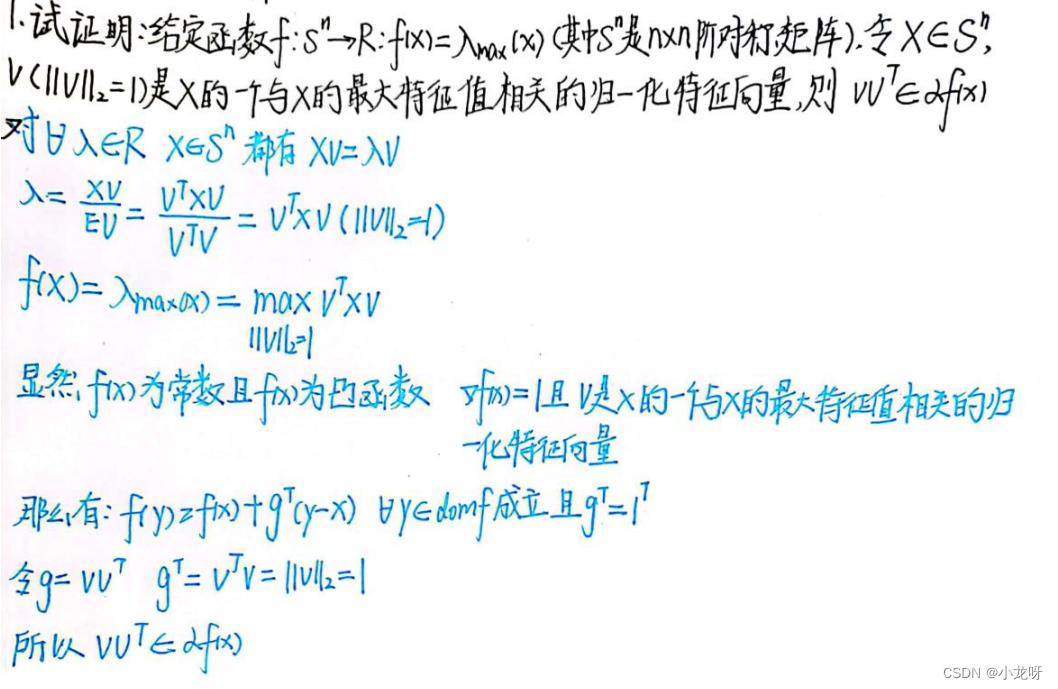 1.试证明:给定函数f:Sⁿ→R:f(x)=λmax(x)(其中Sⁿ是n×n阶对称矩阵).令X∈Sⁿ,
V(||V||₂=1)是X的一个与X的最大特征值相关的归一化特征向量,则 VVᵀ∈∂f(x)
对∀λ∈R X∈Sⁿ 都有 XV=λV
λ= XV/EV = VᵀXV/VᵀV = VᵀXV(||V||₂=1)
f(X)=λmax(x)= max VᵀXV
||V||₂=1
显然,f(x)为常数且f(x)为凸函数 ∇f(x)=1且V是X的一个与X的最大特征值相关的归
一化特征向量
那么有:f(y)≥f(x)+gᵀ(y-x) ∀y∈domf成立且gᵀ=1ᵀ
令g=VVᵀ gᵀ=VᵀV=||V||₂=1
所以VVᵀ∈∂f(x)
CSDN @小龙呀